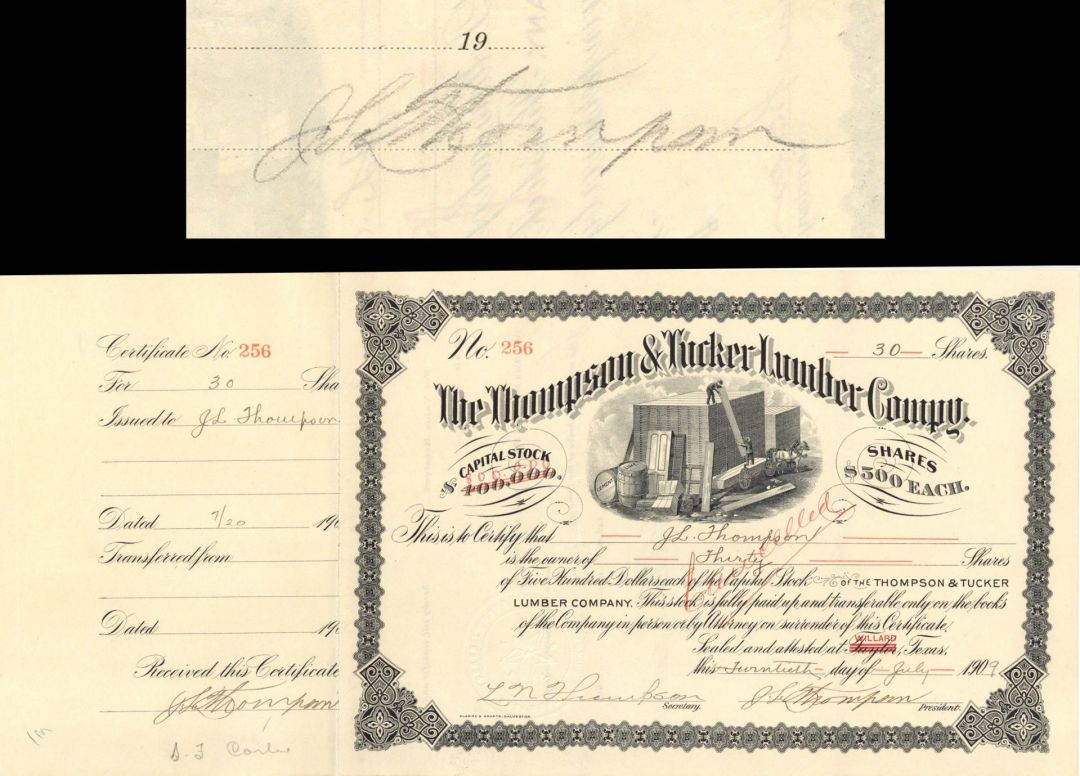 19
JL Thompson
Certificate No. 256
For 30 Sha
Issued to J.L. Thompson
Dated 7/20 190
Transferred from
Dated 190
Received this Certificate
JL Thompson
No. 256
30 Shares.
The Thompson & Tucker Lumber Compy.
CAPITAL STOCK
$ 100.000.
SHARES
$500 EACH.
CEMENT
Cancelled
This is to Certify that J.L. Thompson
is the owner of Thirty Shares
of Five Hundred Dollars each of the Capital Stock OF THE THOMPSON & TUCKER
LUMBER COMPANY. This stock is fully paid up and transferable only on the books
of the Company in person or by Attorney on surrender of this Certificate.
WILLARD
Sealed and attested at Taylor, Texas,
this Twentieth day of July 1909
L N Thompson
Secretary.
J.L. Thompson
President.
CLARKE & COURTS, GALVESTON.